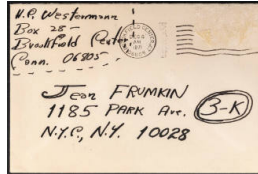 W.P. Westermann
Box 28
Brookfield Center
Conn. 06805
Jean FRUMKIN
1185 PARK Ave.
3-K
N.Y.C., N.Y. 10028